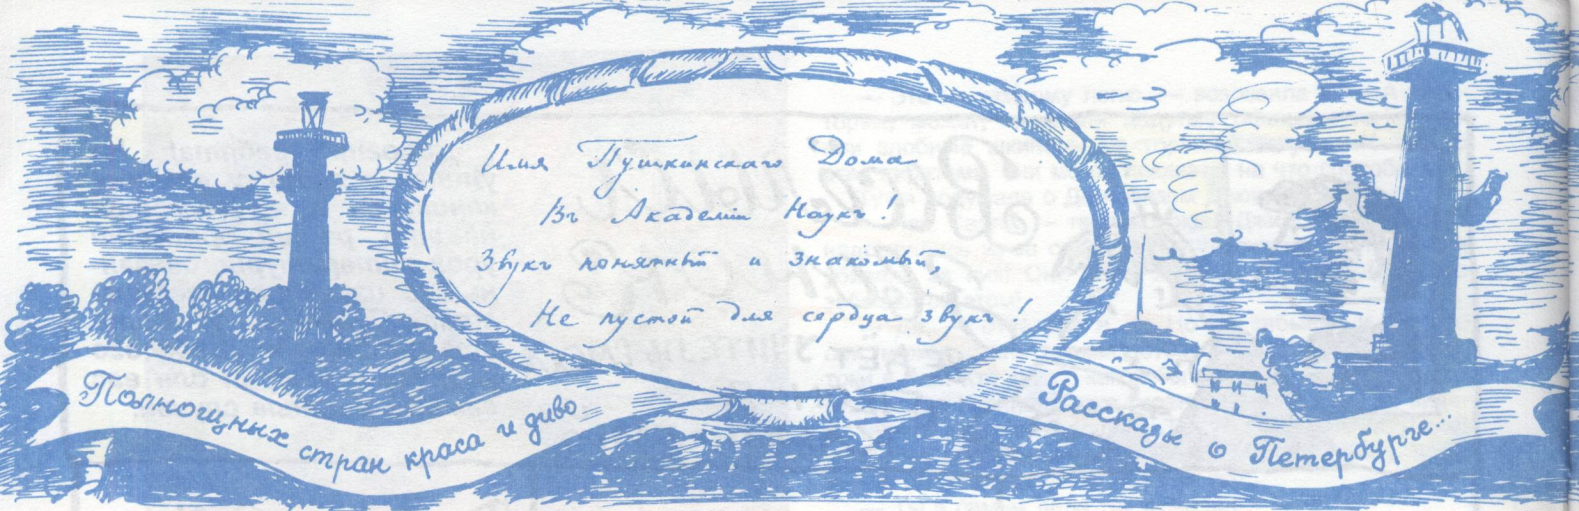 Имя Пушкинскаго Дома
Въ Академіи Наукъ!
Звукъ понятный и знакомый,
Не пустой для сердца звукъ!
Полнощных стран краса и диво
Рассказы о Петербурге...